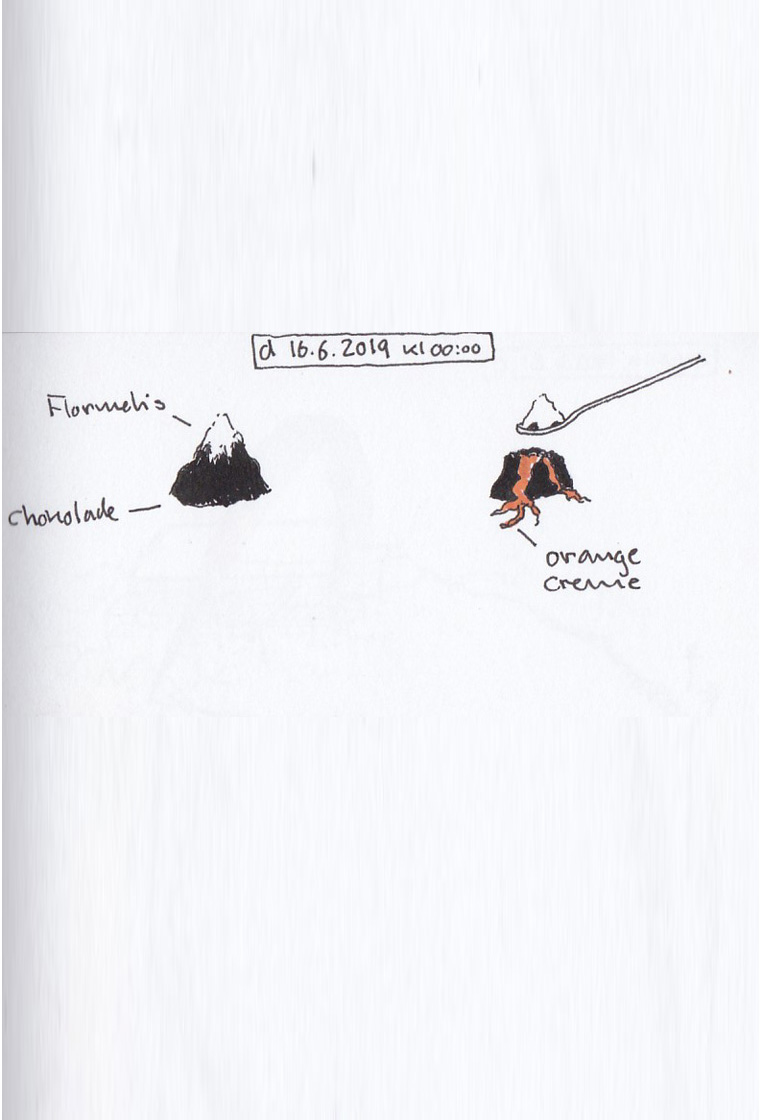 d 16.6.2019 kl 00:00
Flormelis
chokolade
orange
creme